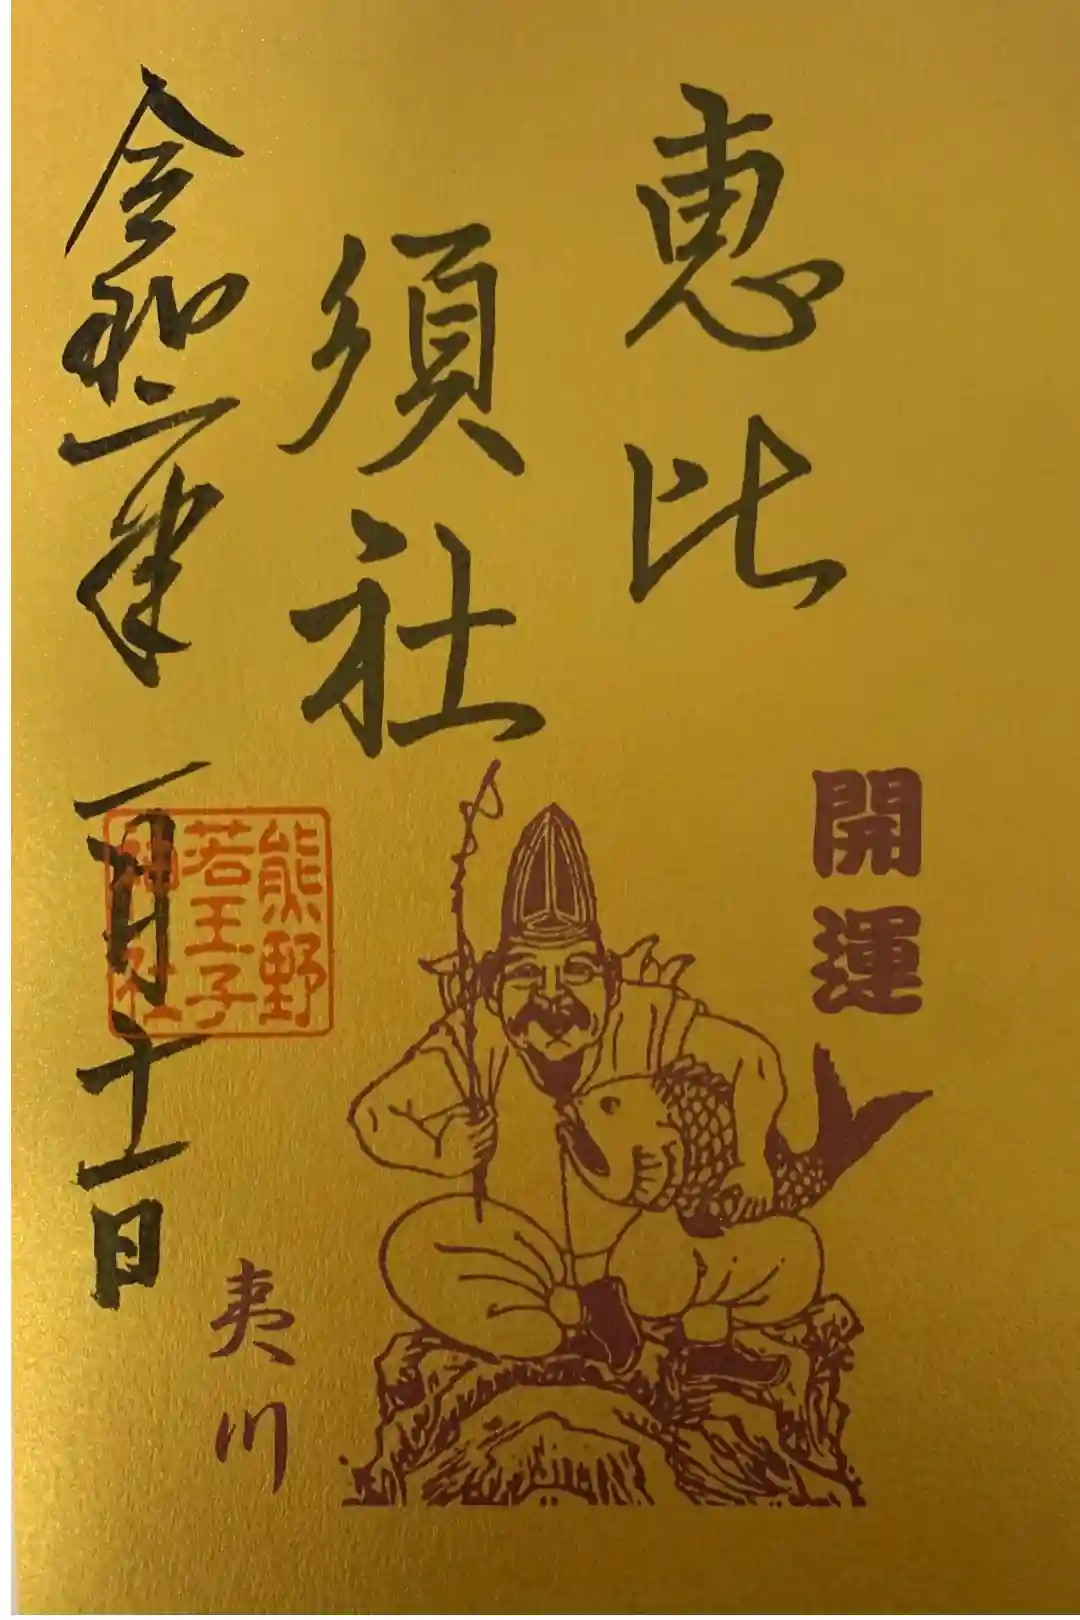 恵比
須社
開運
令和二年一月十一日
熊野
若王子
神社
夷川